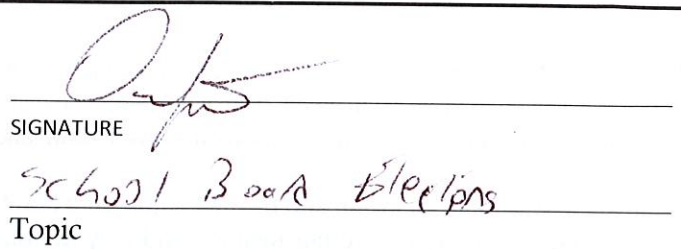 SIGNATURE
School Board Elections
Topic